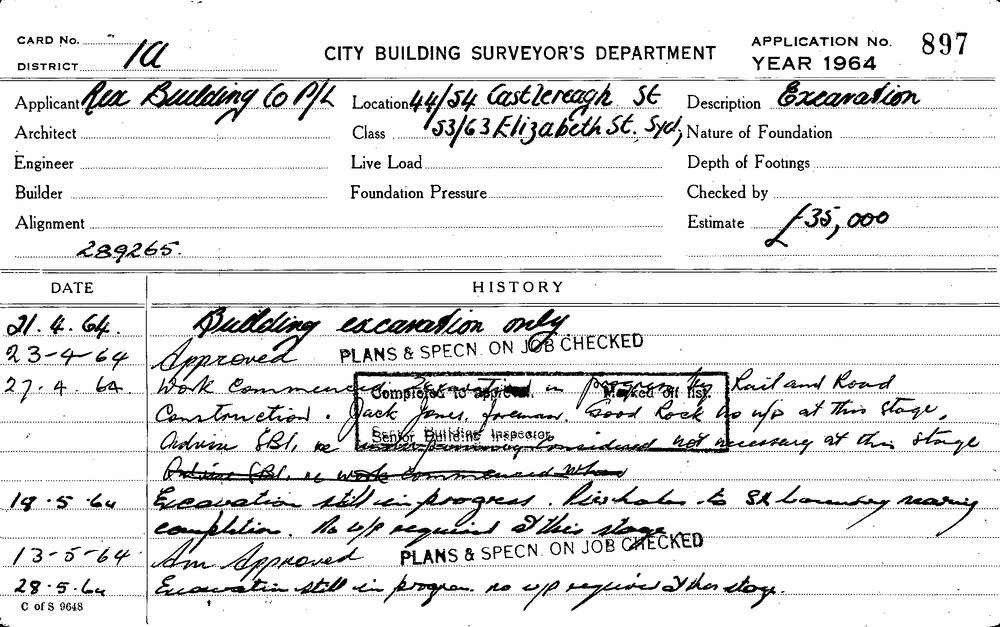 CARD No.
DISTRICT 1a
CITY BUILDING SURVEYOR'S DEPARTMENT
APPLICATION No. 897
YEAR 1964
Applicant Rex Building Co P/L
Location 44/54 Castlereagh St
Description Excavation
Architect
Class 53/63 Elizabeth St. Syd,
Nature of Foundation
Engineer
Live Load
Depth of Footings
Builder
Foundation Pressure
Checked by
Alignment
Estimate £35,000
289265.
DATE
HISTORY
21.4.64. Building excavation only
23-4-64 Approved PLANS & SPECN. ON JOB CHECKED
27.4.64 Work commenced. Excavation in progress by Rail and Road
Completed to approval. Marked off list.
Construction. Jack Jones, foreman. Good Rock no u/p at this stage,
Senior Building Inspector
Advise SBI, re underpinning considered not necessary at this stage
Advise SBI. re work commenced when
18.5.64 Excavation still in progress. Pierholes to SE boundary nearing
completion. No u/p required at this stage
13-5-64 Am Approved PLANS & SPECN. ON JOB CHECKED
28.5.64 Excavation still in progress. no u/p required at this stage.
C of S 9648